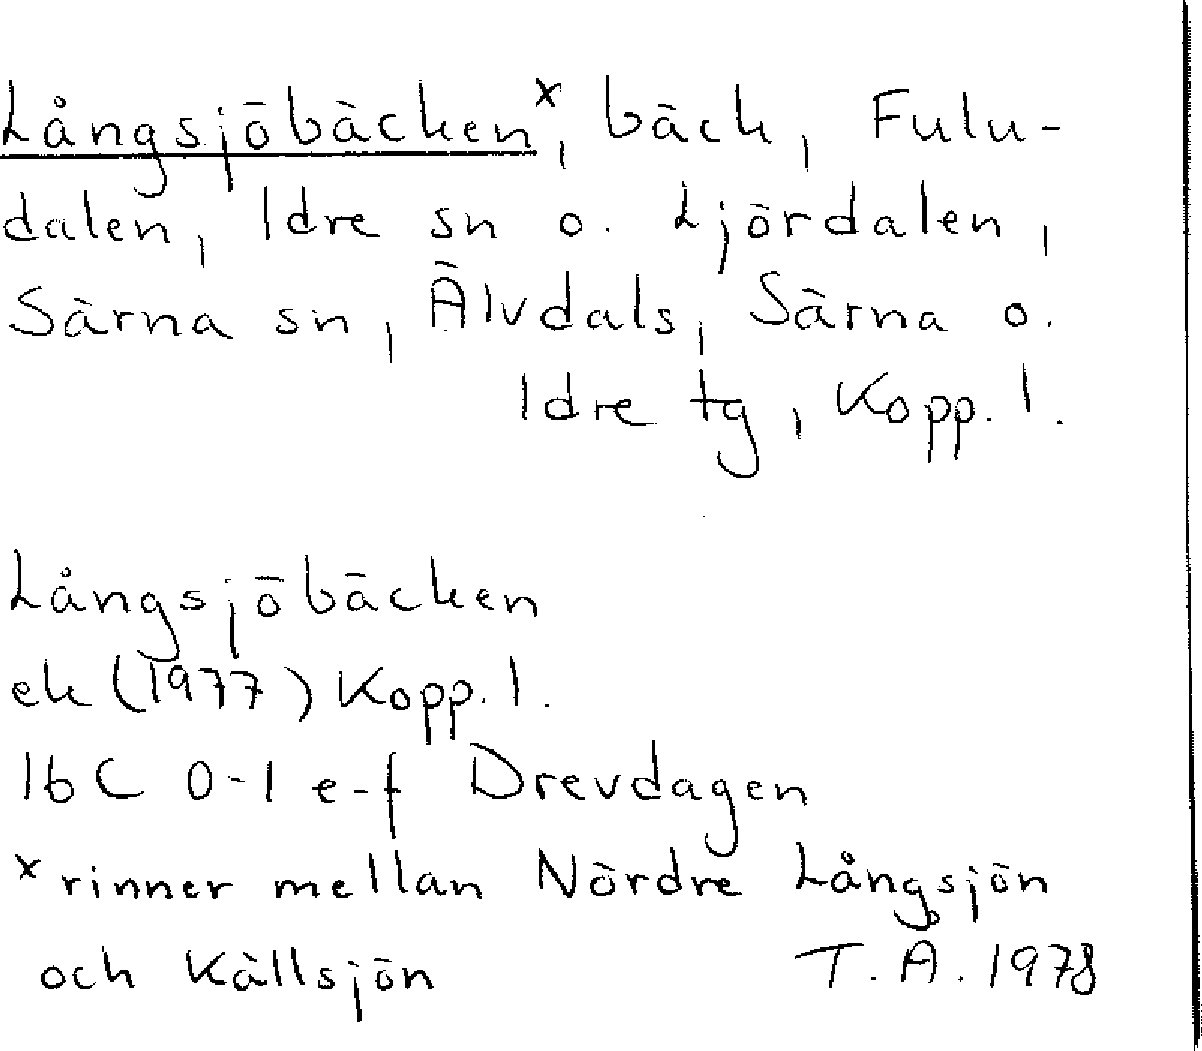 Långsjöbäcken x, bäck, Fulu-
dalen, Idre sn o. Ljördalen,
Särna sn, Älvdals, Särna o.
Idre tg, Kopp. l.
Långsjöbäcken
ek (1977) Kopp. l.
16C 0-1 e-f Drevdagen
x rinner mellan Nördre Långsjön
och Källsjön T.A. 1978